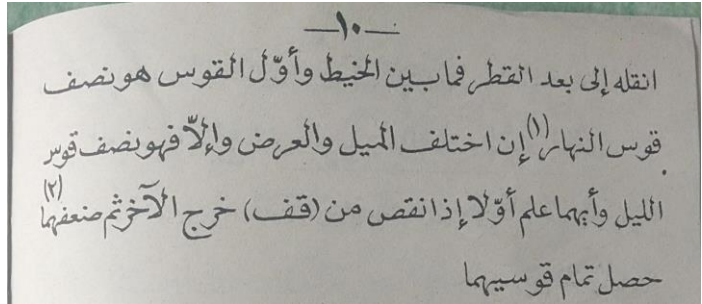 ـ١٠ـ
انقله إلى بعد القطر فما بين الخيط وأوّل القوس هو نصف
قوس النهار(١) إن اختلف الميل والعرض وإلاّ فهو نصف قوس
الليل وأيهما علم أوّلا إذا نقص من (قف) خرج الآخر ثم ضعفهما(٢)
حصل تمام قوسيهما